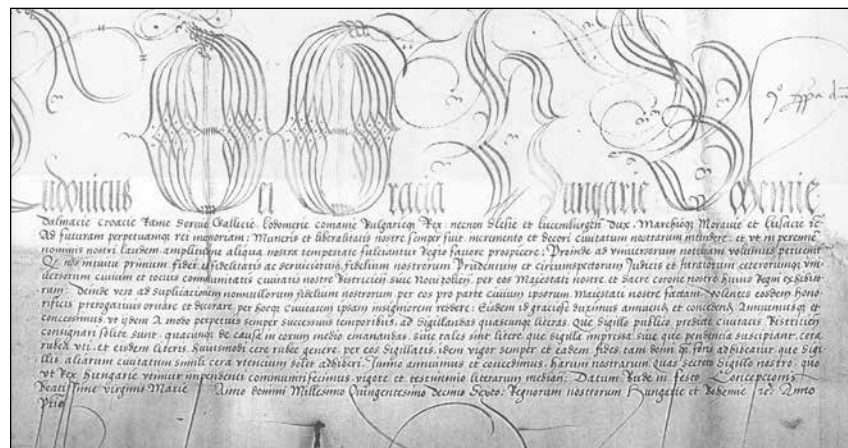 Ludovicus Dei Gracia Hungarie Bohemie
Dalmacie Croacie Rame Servie Gallicie Lodomerie Comanie Bulgarieqz Rex: necnon Slesie et Lucemburgen Dux, Marchioqz Moravie et Lusacie ꝛc
Ad futuram perpetuamqz rei memoriam: Muneris et liberalitatis nostre semper fuit, incremento et decori civitatum nostrarum intendere: et ut in perenne
nominis nostri laudem, amplitudine aliqua nostra tempestate fulciantur Regio favore prospicere: Proinde ad universorum noticiam volumus pervenire
nos intuitu primum fidei et fidelitatis ac serviciorum, fidelium nostrorum Prudentum et circumspectorum Judicis et Juratorum ceterorumqz uni-
versorum civium et tocius communitatis civitatis nostre Bistricien sive Novi polien. per eos Maiestati nostre, et sacre corone nostre huius Regni exhibito-
rum: Deinde vero ad supplicacionem nonnullorum fidelium nostrorum per eos pro parte civium ipsorum, Maiestati nostre factam, volentes eosdem hono-
rificis prerogativis ornare et decorare, per hocqz civitatem ipsam insigniorem reddere: Eisdem id graciose duximus annuend et concedend, Annuimusqz et
concessimus, ut ijdem A modo perpetuis semper successivis temporibus, ad sigillandas quascunqz literas, Que sigillo publico, predicte civitatis Bistricien
consignari solite sunt, quacunqz de causa, in eorum medio emanandas, sive tales sint litere que sigilla impressa, sive que pendencia suscipiant, cera
rubea uti, et eisdem literis, huiusmodi cere rubee genere, per eos sigillatis, idem vigor semper et eadem fides, tam domi qz foris adhibeatur, que sigil-
lis, aliarum civitatum simili cera utencium solet adhiberi. Immo annuimus et concedimus, harum nostrarum, quas secreto sigillo nostro, quo
ut Rex Hungarie utimur impendenti communiri fecimus, vigore et testimonio literarum median. Datum Bude in festo Concepcionis
Beatissime virginis Marie Anno domini Millesimo Quingentesimo decimo Sexto: Regnorum nostrorum Hungarie et Bohemie ꝛc. Anno